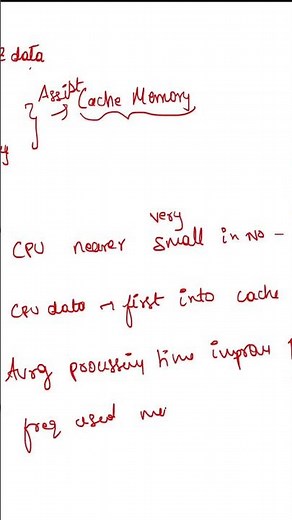 data
Assist
} → Cache Memory
y
very
CPU nearer small in No -
CPU data → first into cache
Avrg processiy time improv
freq used me